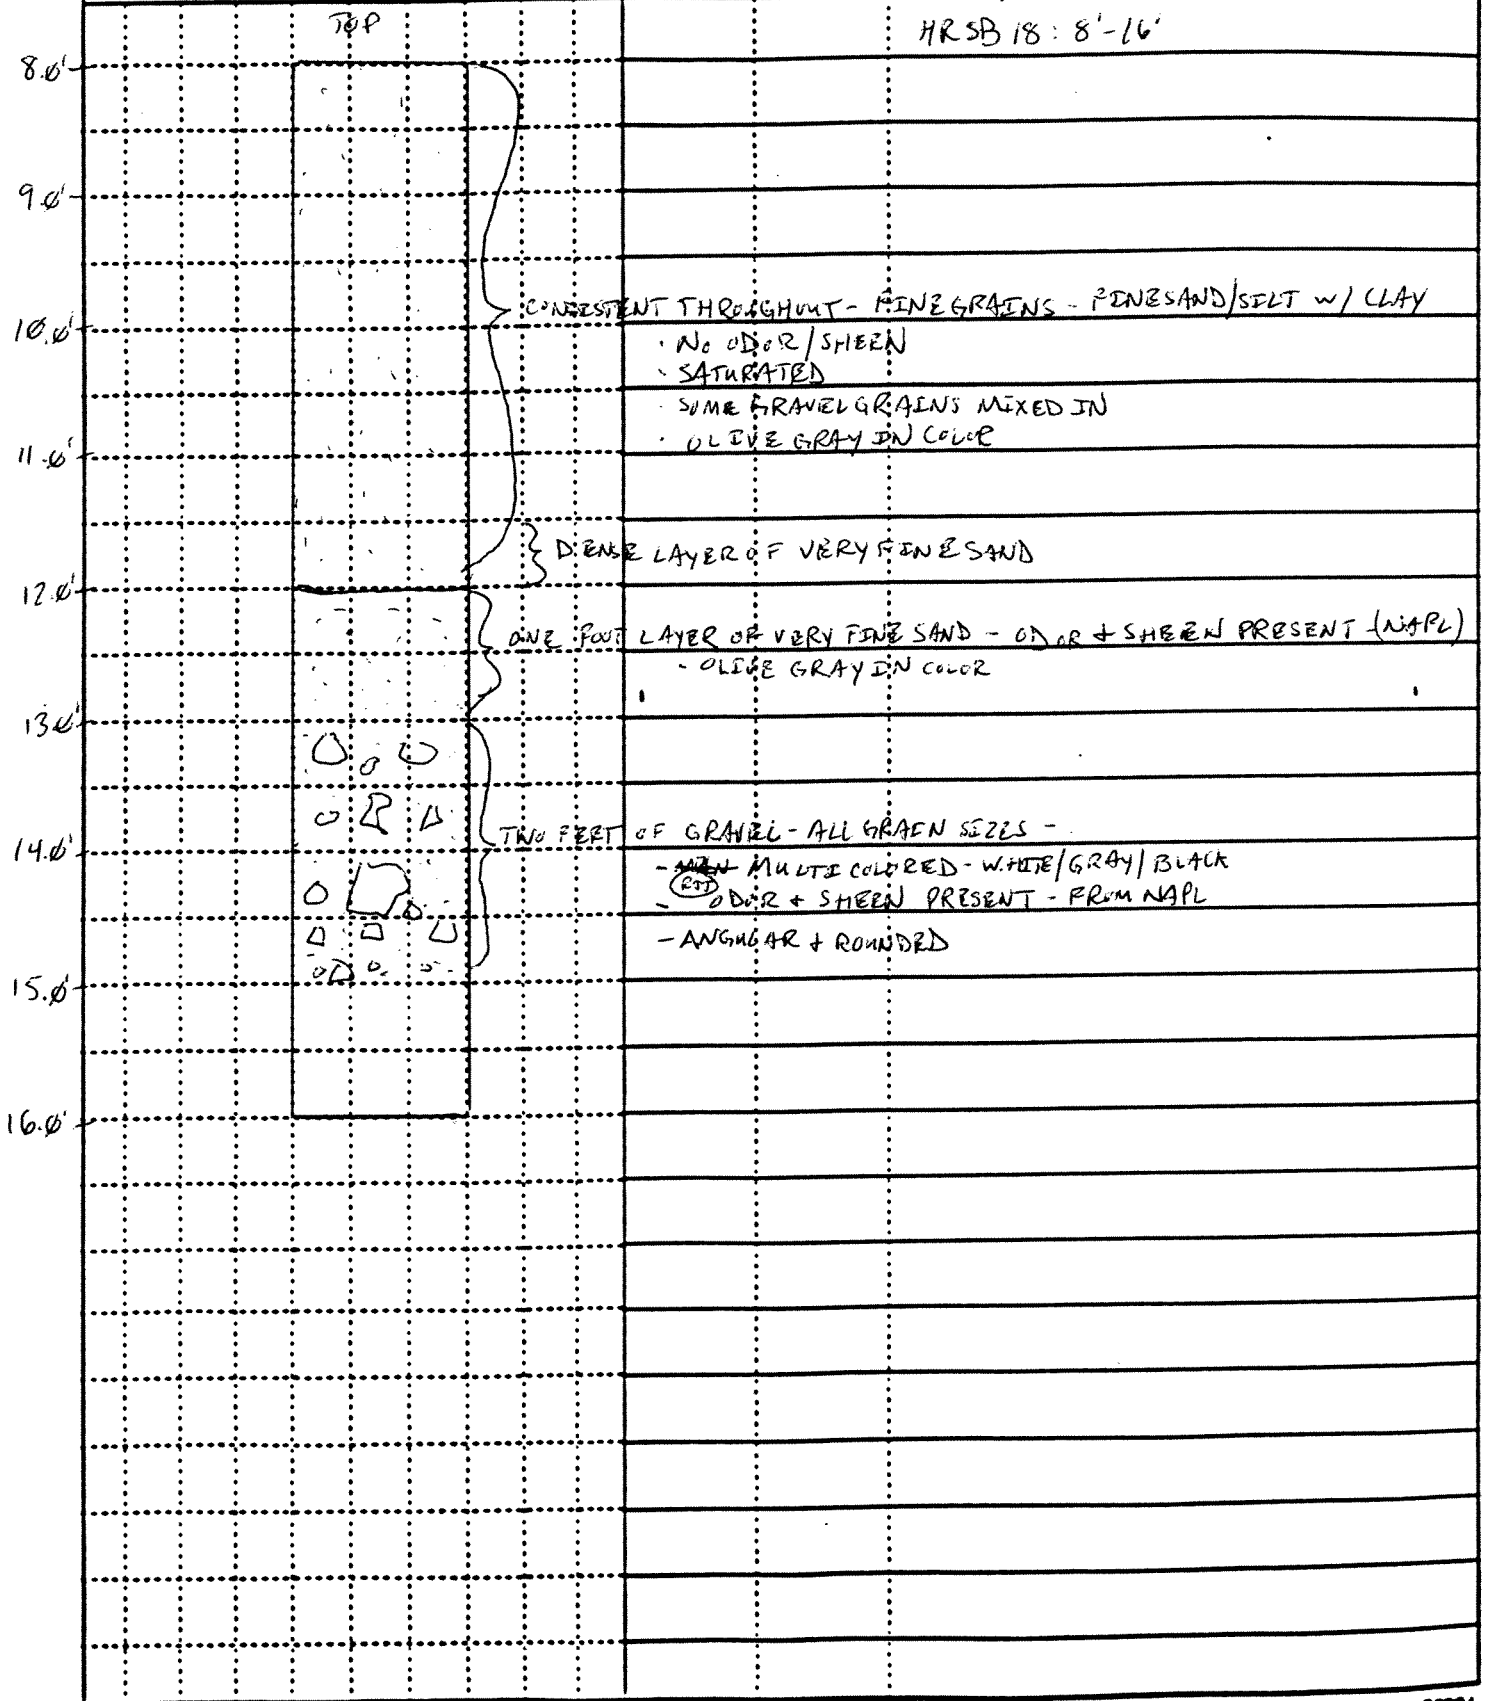 TOP
HRSB 18: 8'-16'
8.0'
9.0'
CONSISTENT THROUGHOUT - FINE GRAINS - FINE SAND/SILT W/ CLAY
10.0'
· NO ODOR/SHEEN
· SATURATED
· SOME GRAVEL GRAINS MIXED IN
· OLIVE GRAY IN COLOR
11.0'
DENSE LAYER OF VERY FINE SAND
12.0'
ONE FOOT LAYER OF VERY FINE SAND - ODOR + SHEEN PRESENT (NAPL)
- OLIVE GRAY IN COLOR
13.0'
TWO FEET OF GRAVEL - ALL GRAIN SIZES -
14.0'
- MULTI COLORED - WHITE/GRAY/BLACK
- ODOR + SHEEN PRESENT - FROM NAPL
- ANGULAR + ROUNDED
15.0'
16.0'